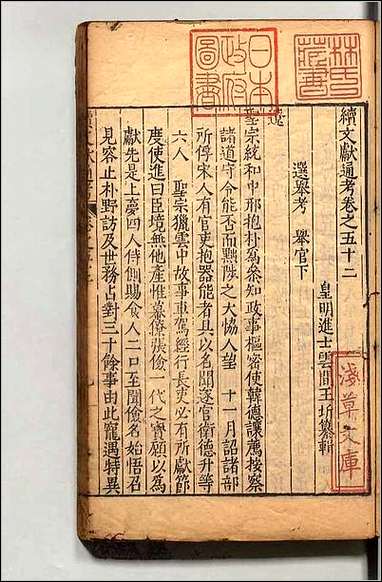 續文獻通考卷之五十二
皇明進士雲間王圻纂輯
選舉考 舉官下
遼
聖宗統和中邢抱朴爲參知政事樞密使韓德讓薦按察
諸道守令能否而黜陟之大愜人望 十一月詔諸部
所俘宋人有官吏抱器能者具以名聞遂官衛德升等
六人 聖宗獵雲中故事車駕經行長吏必有所獻節
度使進曰臣境無他產惟幕僚張儉一代之寶願以爲
獻先是上夢四人侍側賜食人二口至聞儉名始悟召
見容止朴野訪及世務占對三十餘事由此寵遇特異
林氏藏書
日本政府圖書
淺草文庫